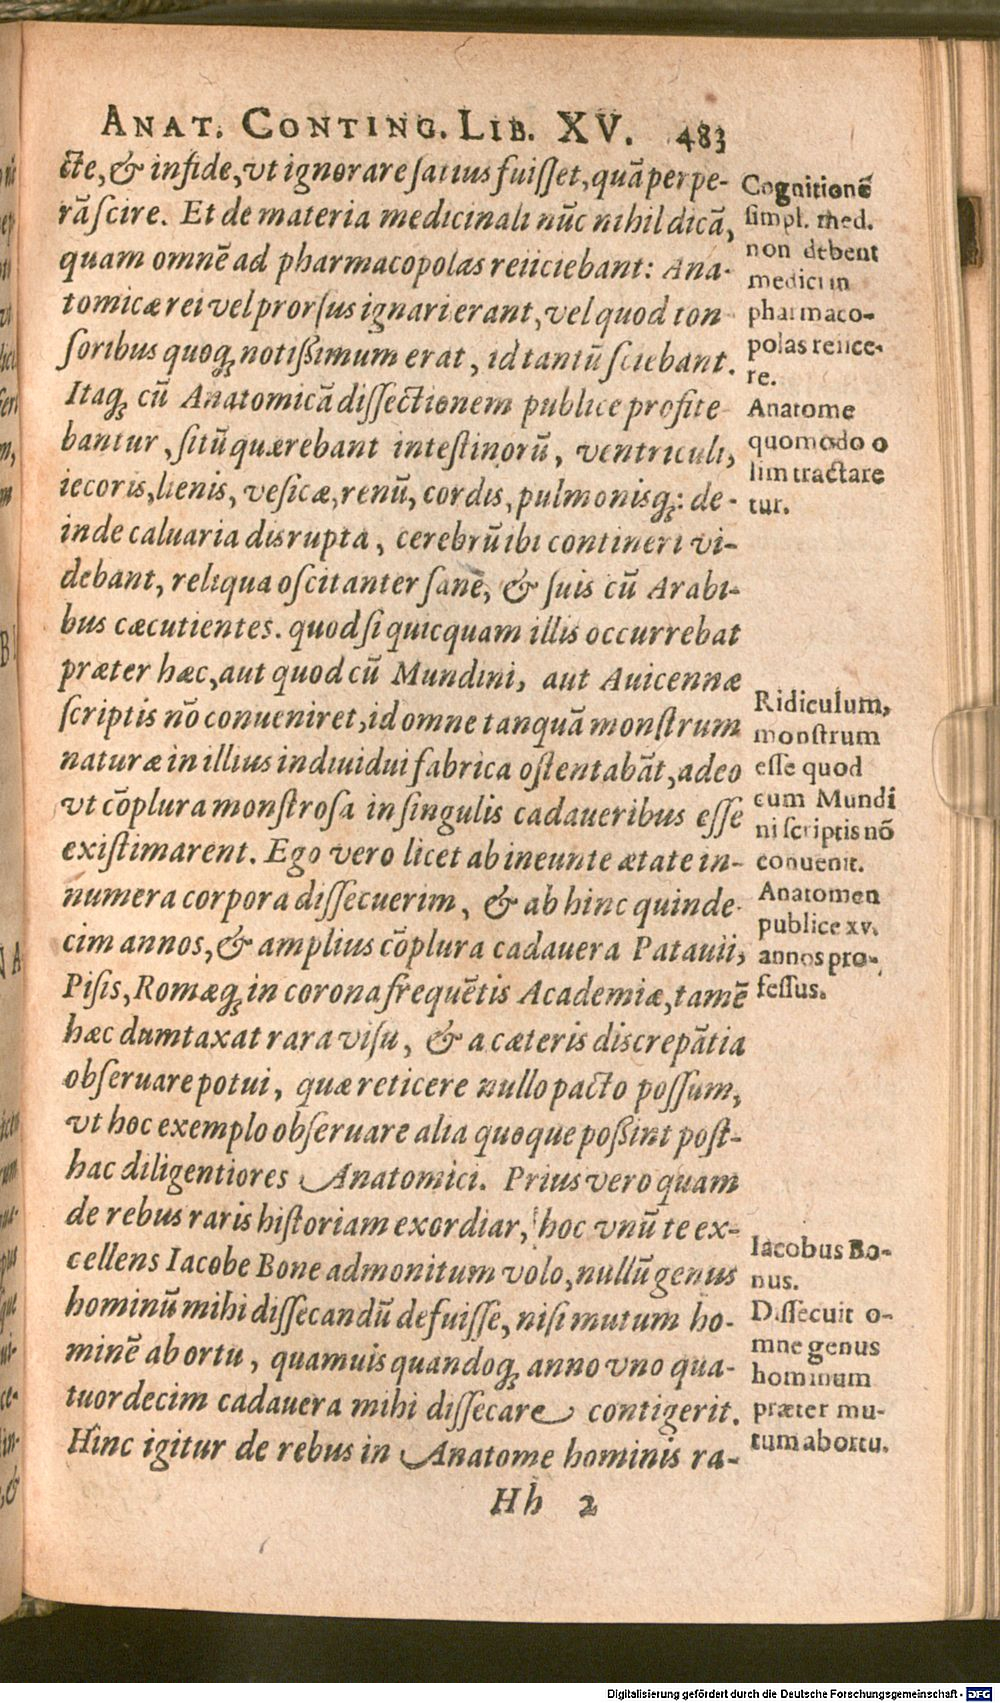 ANAT. CONTING. LIB. XV. 483
cte, & infide, vt ignorare ſatius fuiſſet, quā perpe-
rā ſcire. Et de materia medicinali nūc nihil dicā,
quam omnē ad pharmacopolas reiiciebant: Ana-
tomicæ rei vel prorſus ignari erant, vel quod ton
ſoribus quoq; notiſſimum erat, id tantū ſciebant.
Itaq; cū Anatomicā diſſectionem publice profite
bantur, ſitū quærebant inteſtinorū, ventriculi,
iecoris, lienis, veſicæ, renū, cordis, pulmonisq;: de-
inde caluaria disrupta, cerebrū ibi contineri vi-
debant, reliqua oſcitanter ſane, & ſuis cū Arabi-
bus cæcutientes. quod ſi quicquam illis occurrebat
præter hæc, aut quod cū Mundini, aut Auicennæ
ſcriptis nō conueniret, id omne tanquā monſtrum
naturæ in illius indiuidui fabrica oſtentabāt, adeo
vt cōplura monſtroſa in ſingulis cadaueribus eſſe
exiſtimarent. Ego vero licet ab ineunte ætate in-
numera corpora diſſecuerim, & ab hinc quinde-
cim annos, & amplius cōplura cadauera Patauii,
Piſis, Romæq; in corona frequētis Academiæ, tamē
hæc dumtaxat rara viſu, & a cæteris discrepātia
obſeruare potui, quæ reticere nullo pacto poſſum,
vt hoc exemplo obſeruare alia quoque poſſint poſt-
hac diligentiores Anatomici. Prius vero quam
de rebus raris hiſtoriam exordiar, hoc vnū te ex-
cellens Iacobe Bone admonitum volo, nullū genus
hominū mihi diſſecandū defuiſſe, niſi mutum ho-
minē ab ortu, quamuis quandoq; anno vno qua-
tuordecim cadauera mihi diſſecare contigerit.
Hinc igitur de rebus in Anatome hominis ra-
Hh 2
Cognitionē
ſimpl. med.
non debent
medici in
pharmaco-
polas reiice-
re.
Anatome
quomodo o
lim tractare
tur.
Ridiculum,
monſtrum
eſſe quod
cum Mundi
ni ſcriptis nō
conuenit.
Anatomen
publice xv.
annos pro-
feſſus.
Iacobus Bo-
nus.
Diſſecuit o-
mne genus
hominum
præter mu-
tum abortu.
Digitalisierung gefördert durch die Deutsche Forschungsgemeinschaft - DFG